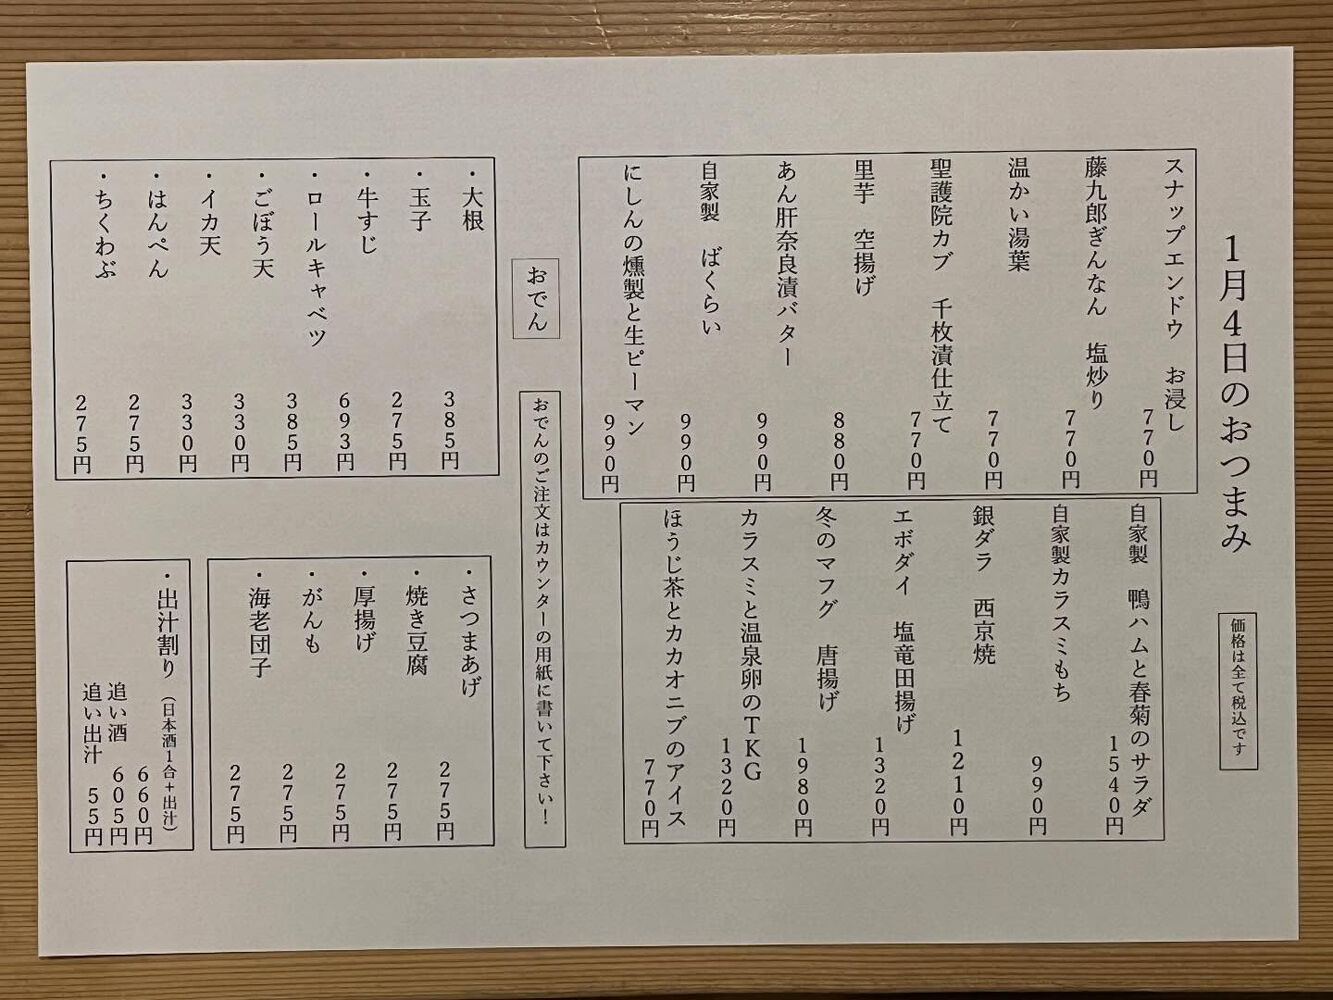 1月4日のおつまみ
価格は全て税込です
スナップエンドウ　お浸し
770円
藤九郎ぎんなん　塩炒り
770円
温かい湯葉
770円
聖護院カブ　千枚漬仕立て
770円
里芋　空揚げ
880円
あん肝奈良漬バター
990円
自家製　ばくらい
990円
にしんの燻製と生ピーマン
990円
自家製　鴨ハムと春菊のサラダ
1540円
自家製カラスミもち
990円
銀ダラ　西京焼
1210円
エボダイ　塩竜田揚げ
1320円
冬のマフグ　唐揚げ
1980円
カラスミと温泉卵のTKG
1320円
ほうじ茶とカカオニブのアイス
770円
おでん
おでんのご注文はカウンターの用紙に書いて下さい！
・大根
385円
・玉子
275円
・牛すじ
693円
・ロールキャベツ
385円
・ごぼう天
330円
・イカ天
330円
・はんぺん
275円
・ちくわぶ
275円
・さつまあげ
275円
・焼き豆腐
275円
・厚揚げ
275円
・がんも
275円
・海老団子
275円
・出汁割り（日本酒1合+出汁）
660円
追い酒　605円
追い出汁　55円